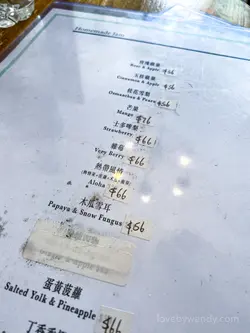 Homemade Jam
玫瑰蘋果
Rose & Apple $56
玉桂蘋果
Cinnamon & Apple $56
桂花雪梨
Osmanthus & Pears $56
芒果
Mango $76
士多啤梨
Strawberry $66
雜莓
Very Berry $66
熱帶風情
Aloha $66
木瓜雪耳
Papaya & Snow Fungus $56
蛋黃菠蘿
Salted Yolk & Pineapple $66
丁香
lovebzwendy.com